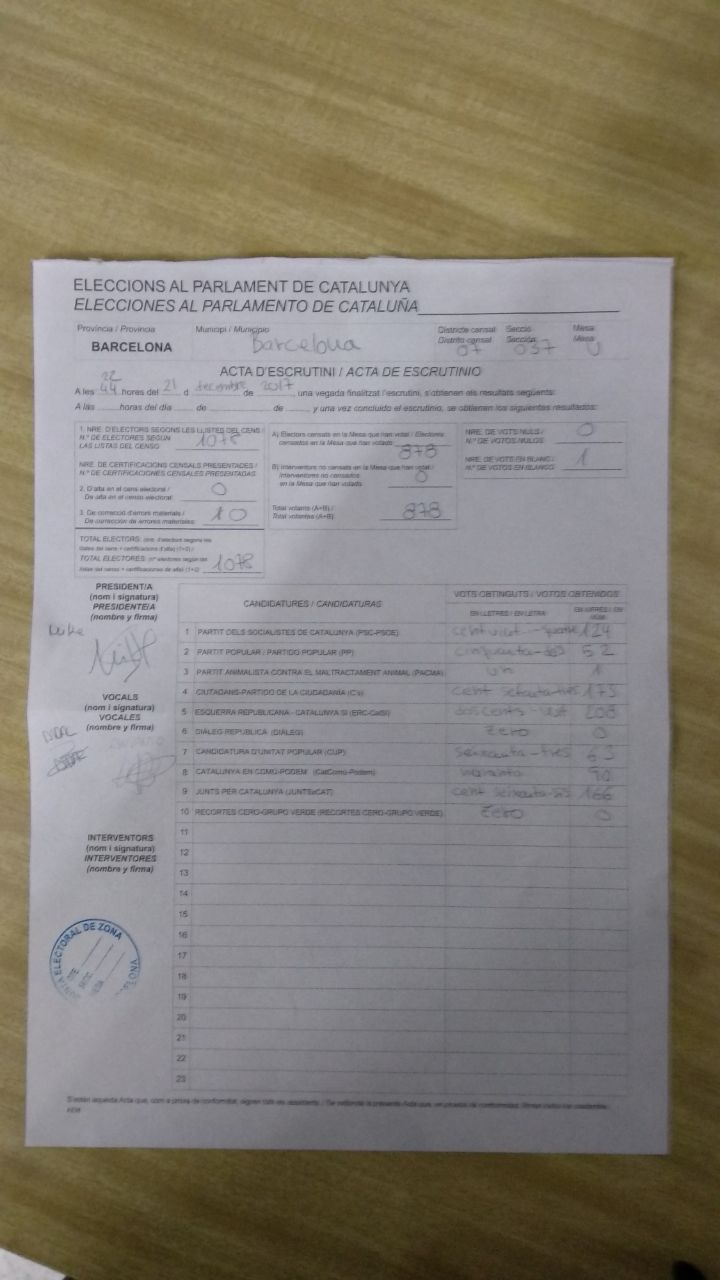 ELECCIONS AL PARLAMENT DE CATALUNYA
ELECCIONES AL PARLAMENTO DE CATALUÑA
Província / Provincia Municipi / Municipio Districte censal Secció Mesa
Distrito censal Sección Mesa
BARCELONA Barcelona 07 037 U
ACTA D'ESCRUTINI / ACTA DE ESCRUTINIO
22
A les 44 hores del 21 d desembre de 2017, una vegada finalitzat l'escrutini, s'obtenen els resultats següents:
A las ......... horas del día ...... de ............... de ........, y una vez concluido el escrutinio, se obtienen los siguientes resultados:
1. NRE. D'ELECTORS SEGONS LES LLISTES DEL CENS /
N.º DE ELECTORES SEGÚN
LAS LISTAS DEL CENSO 1078
NRE. DE CERTIFICACIONS CENSALS PRESENTADES /
N.º DE CERTIFICACIONES CENSALES PRESENTADAS
2. D'alta en el cens electoral /
De alta en el censo electoral: 0
3. De correcció d'errors materials /
De corrección de errores materiales: 10
TOTAL ELECTORS: (nre. d'electors segons les
llistes del cens + certificacions d'alta) (1+2) /
TOTAL ELECTORES: (nº electores según las
listas del censo + certificaciones de alta) (1+2) 1078
A) Electors censats en la Mesa que han votat / Electores
censados en la Mesa que han votado 878
B) Interventors no censats en la Mesa que han votat /
Interventores no censados
en la Mesa que han votado 0
Total votants (A+B) /
Total votantes (A+B) 878
NRE. DE VOTS NULS /
N.º DE VOTOS NULOS 0
NRE. DE VOTS EN BLANC /
N.º DE VOTOS EN BLANCO 1
PRESIDENT/A
(nom i signatura)
PRESIDENTE/A
(nombre y firma)
VOCALS
(nom i signatura)
VOCALES
(nombre y firma)
INTERVENTORS
(nom i signatura)
INTERVENTORES
(nombre y firma)
JUNTA ELECTORAL DE ZONA
CANDIDATURES / CANDIDATURAS VOTS OBTINGUTS / VOTOS OBTENIDOS
EN LLETRES / EN LETRA EN XIFRES / EN NÚM.
1 PARTIT DELS SOCIALISTES DE CATALUNYA (PSC-PSOE) cent vint-i-quatre 124
2 PARTIT POPULAR / PARTIDO POPULAR (PP) cinquanta-dos 52
3 PARTIT ANIMALISTA CONTRA EL MALTRACTAMENT ANIMAL (PACMA) un 1
4 CIUTADANS-PARTIDO DE LA CIUDADANÍA (C's) cent setanta-tres 173
5 ESQUERRA REPUBLICANA - CATALUNYA SÍ (ERC-CatSí) doscents-vuit 208
6 DIÀLEG REPÚBLICA (DIÀLEG) Zero 0
7 CANDIDATURA D'UNITAT POPULAR (CUP) seixanta-tres 63
8 CATALUNYA EN COMÚ-PODEM (CatComú-Podem) noranta 90
9 JUNTS PER CATALUNYA (JUNTSxCAT) cent seixanta-sis 166
10 RECORTES CERO-GRUPO VERDE (RECORTES CERO-GRUPO VERDE) Zero 0
11
12
13
14
15
16
17
18
19
20
21
22
23